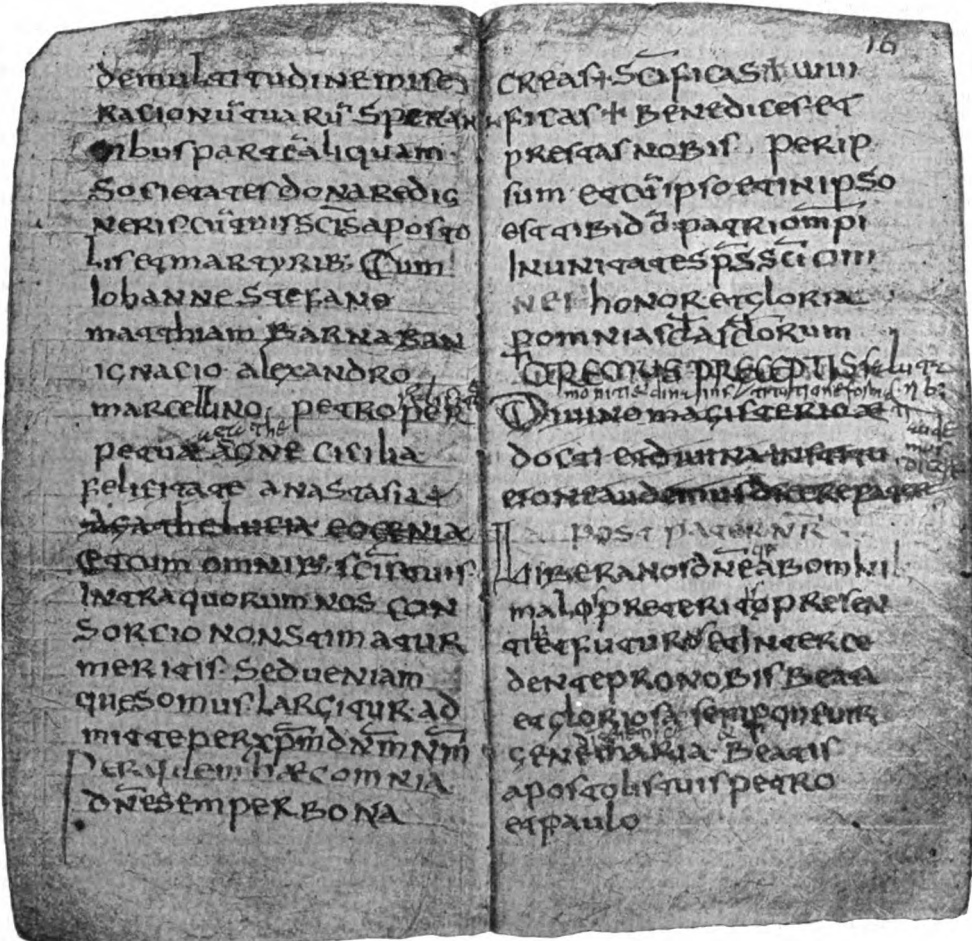 demultitudinemise
racionū tuarū speran
tibus partē aliquam
societates donaredig
neris cū tuis scīs aposto
lis et martyrib; Cum
Iohanne Stefano
matthiam Barnaban
ignacio alexandro
marcellino petro
petua agne cicilia
felicitate anastasia
agathe lucia eogenia
et cum omnib; scīs tuis
Intra quorum nos con
sorcio non stimatur
meritis sed ueniam
quesomus largitur ad
mitte per xp̄m dn̄m nm̄
Per quem hæc omnia
dn̄e semper bona
16
creas + Scīficas + uiui
ficas + Benedices et
prestas nobis Per ip
sum et cū ipso et in ipso
est tibi dō patri omp̄i
In unitates sp̄s scī om
nes honor et gloria
p omnia scla sclorum
OREMUS PRECEPTIS salut
Diuino magisterio
docti et diuina institu
tione audemus dicere pater
post pater nr̄
Libera nos dn̄e ab omni
malo preterito presen
ti et futuro et interce
dente pro nobis Beata
et gloriosa semper uir
gene maria Beatis
apostolis tuis petro
et paulo